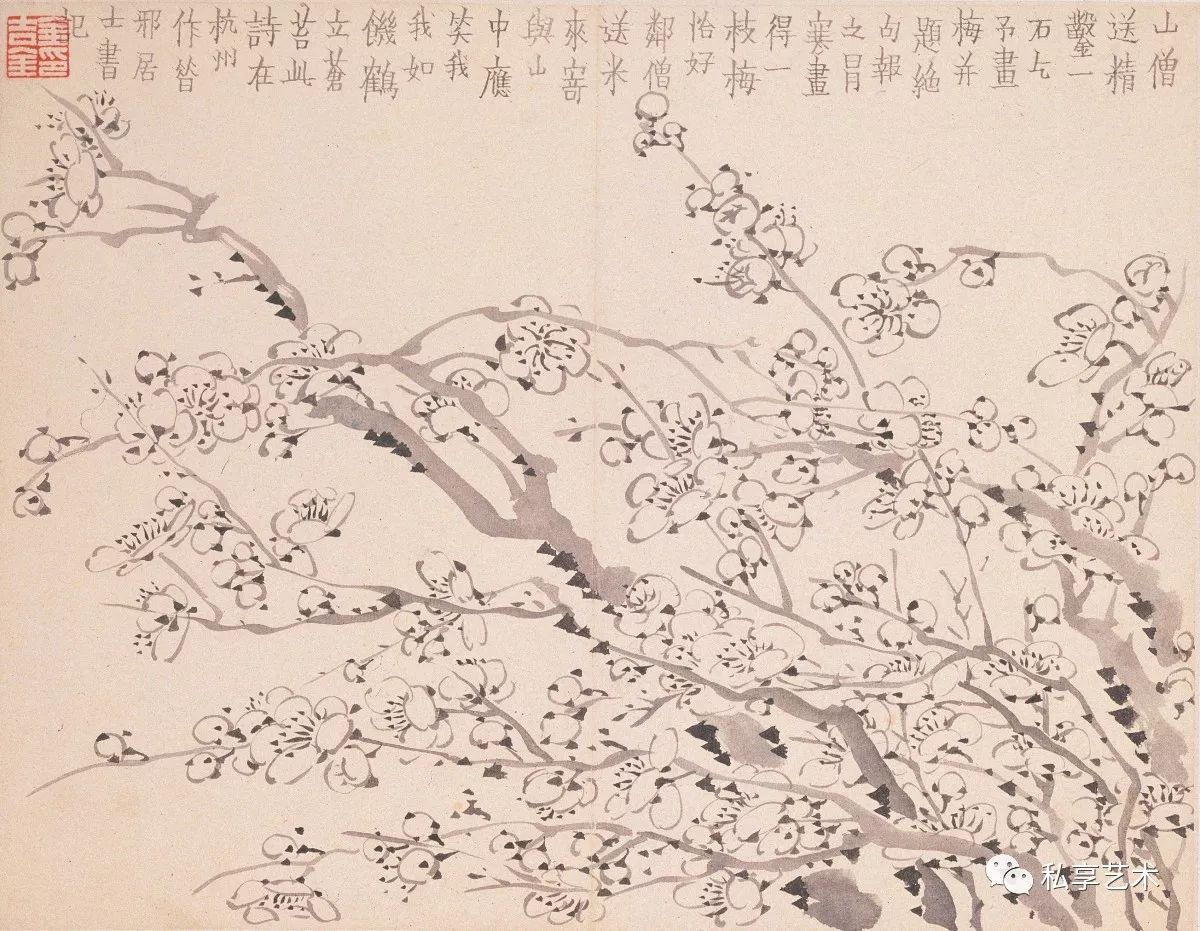 山僧
送精
鑿一
石乞
予畫
梅并
題絶
句報
之冒
寒畫
得一
枝梅
恰好
鄰僧
送米
來寄
與山
中應
笑我
我如
饑鶴
立蒼
苔此
詩在
杭州
作昔
邪居
士書
記
私享艺术